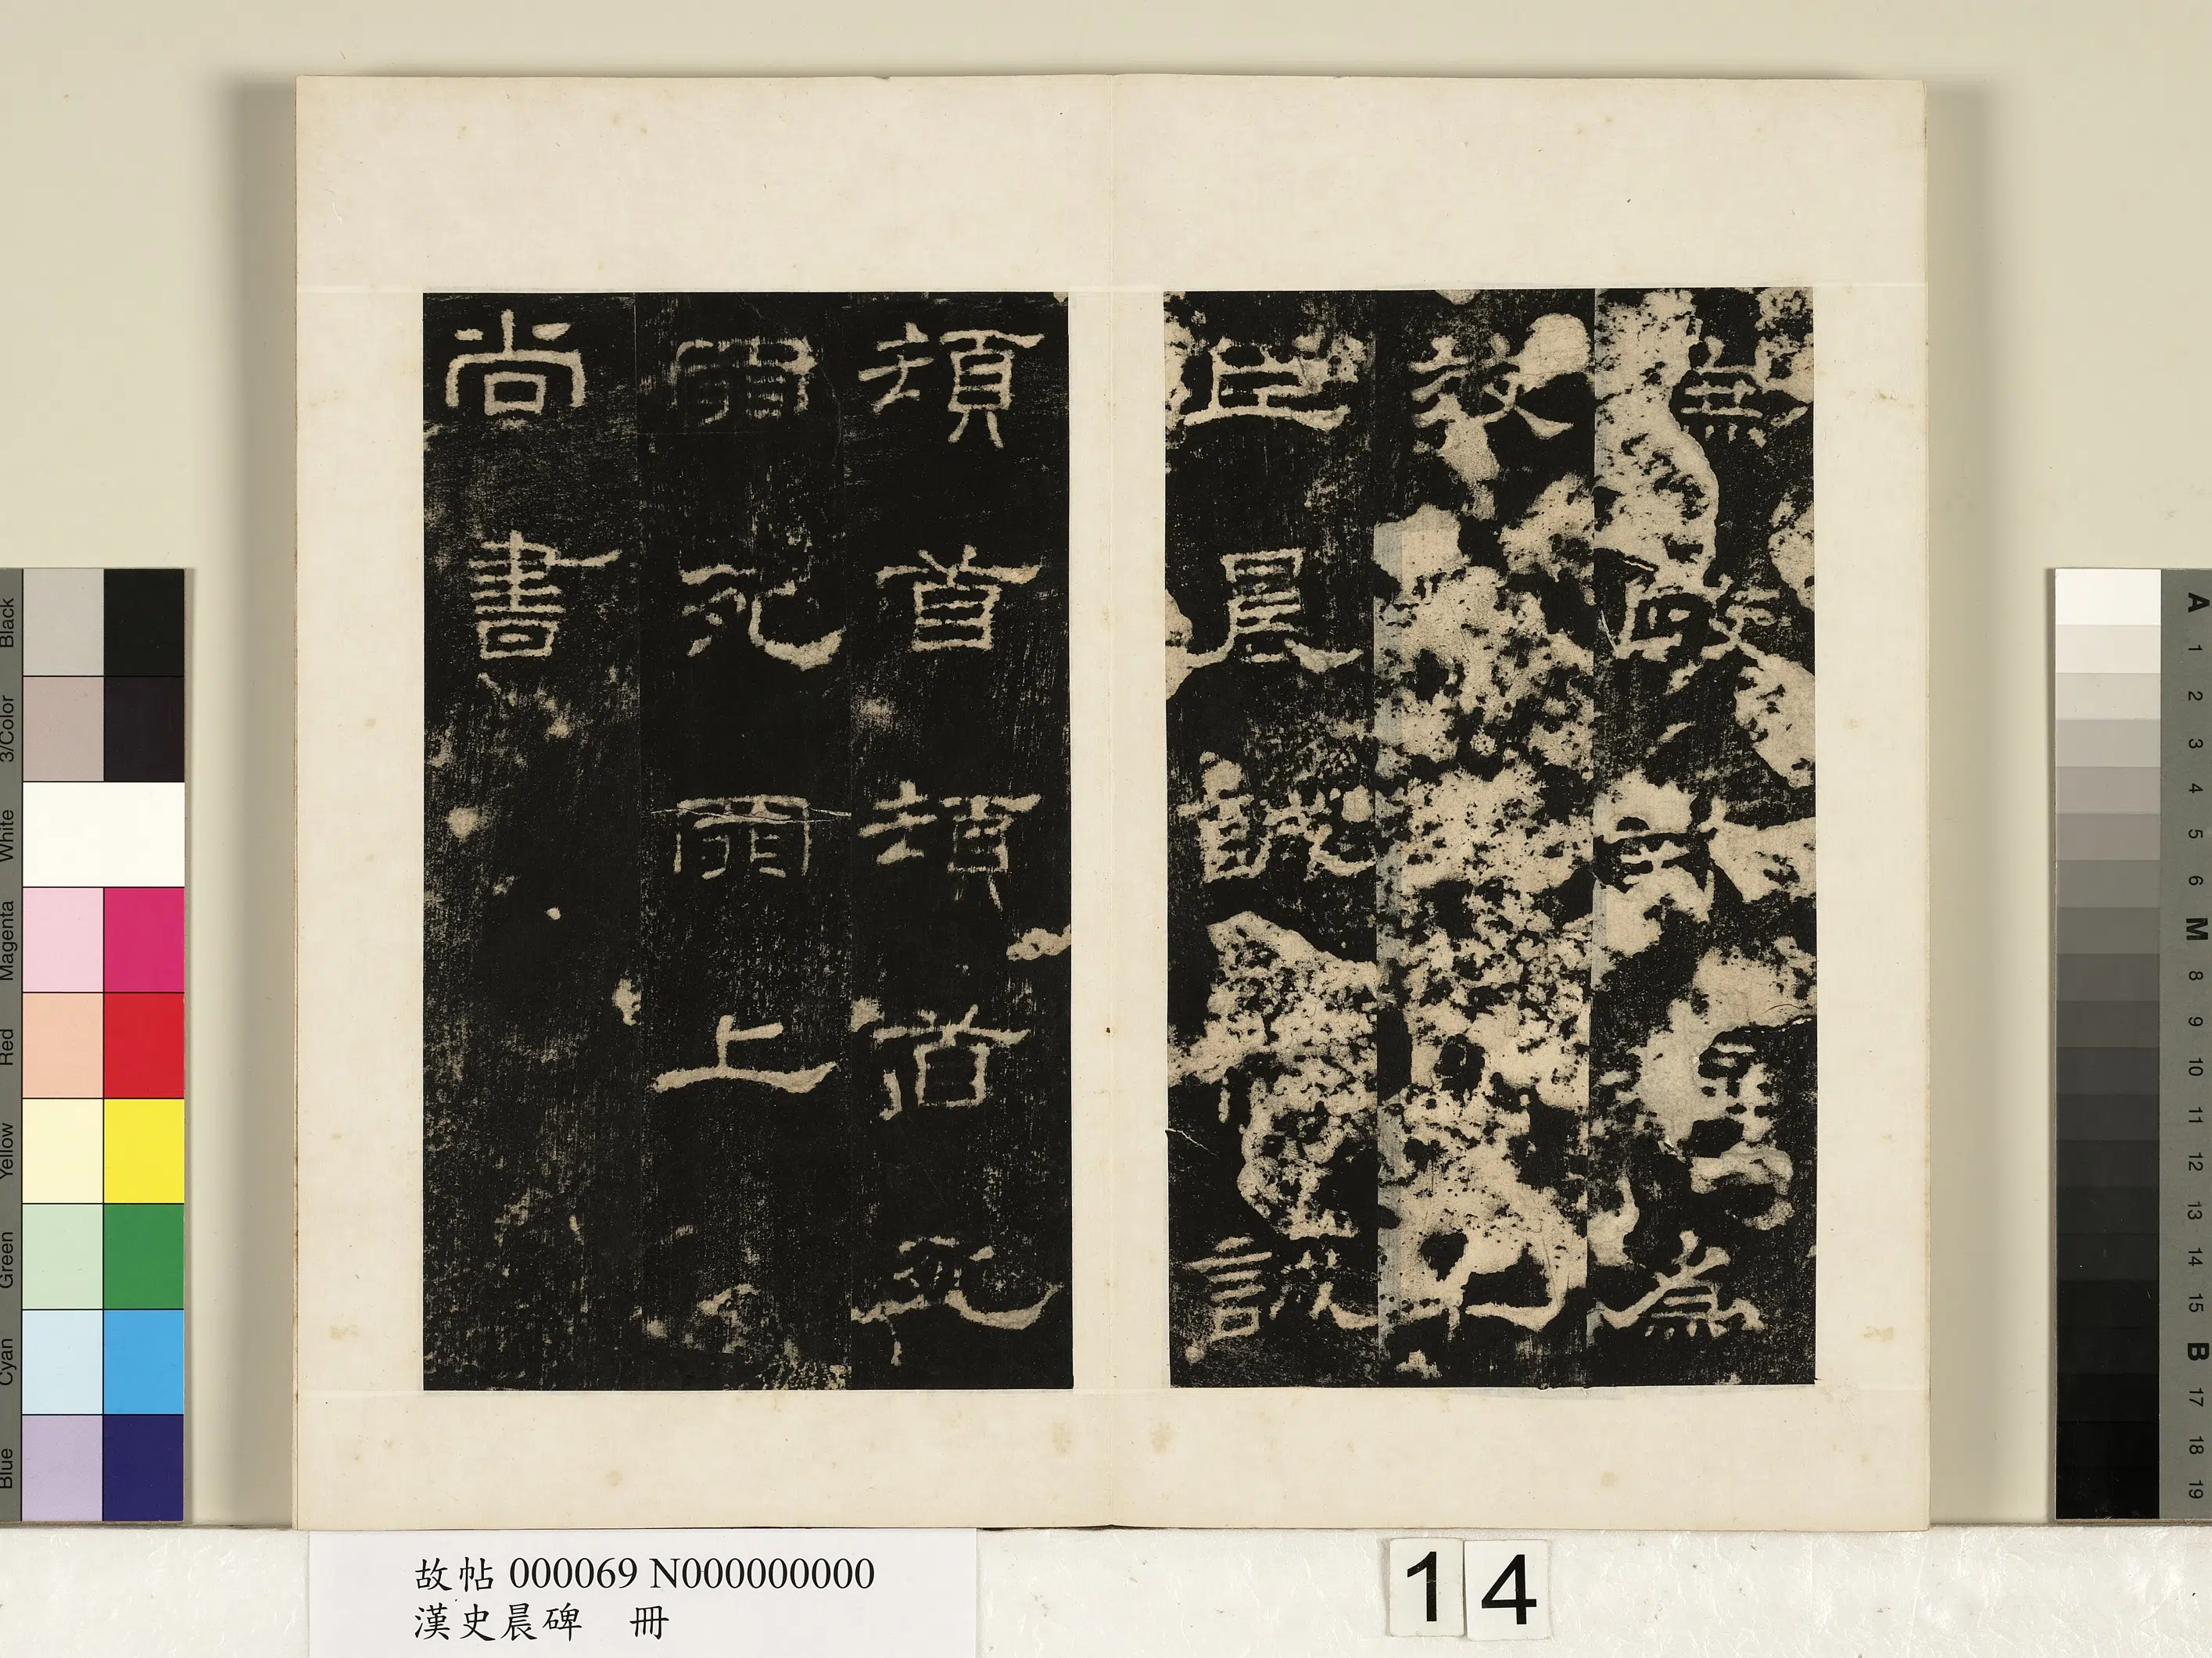 庶政為
效
臣晨誠誠
頓首頓首死
罪死罪上
尚書
故帖 000069 N000000000
漢史晨碑 冊
14
Black
3/Color
White
Magenta
Red
Yellow
Green
Cyan
Blue
A
1
2
3
4
5
6
M
8
9
10
11
12
13
14
15
B
17
18
19